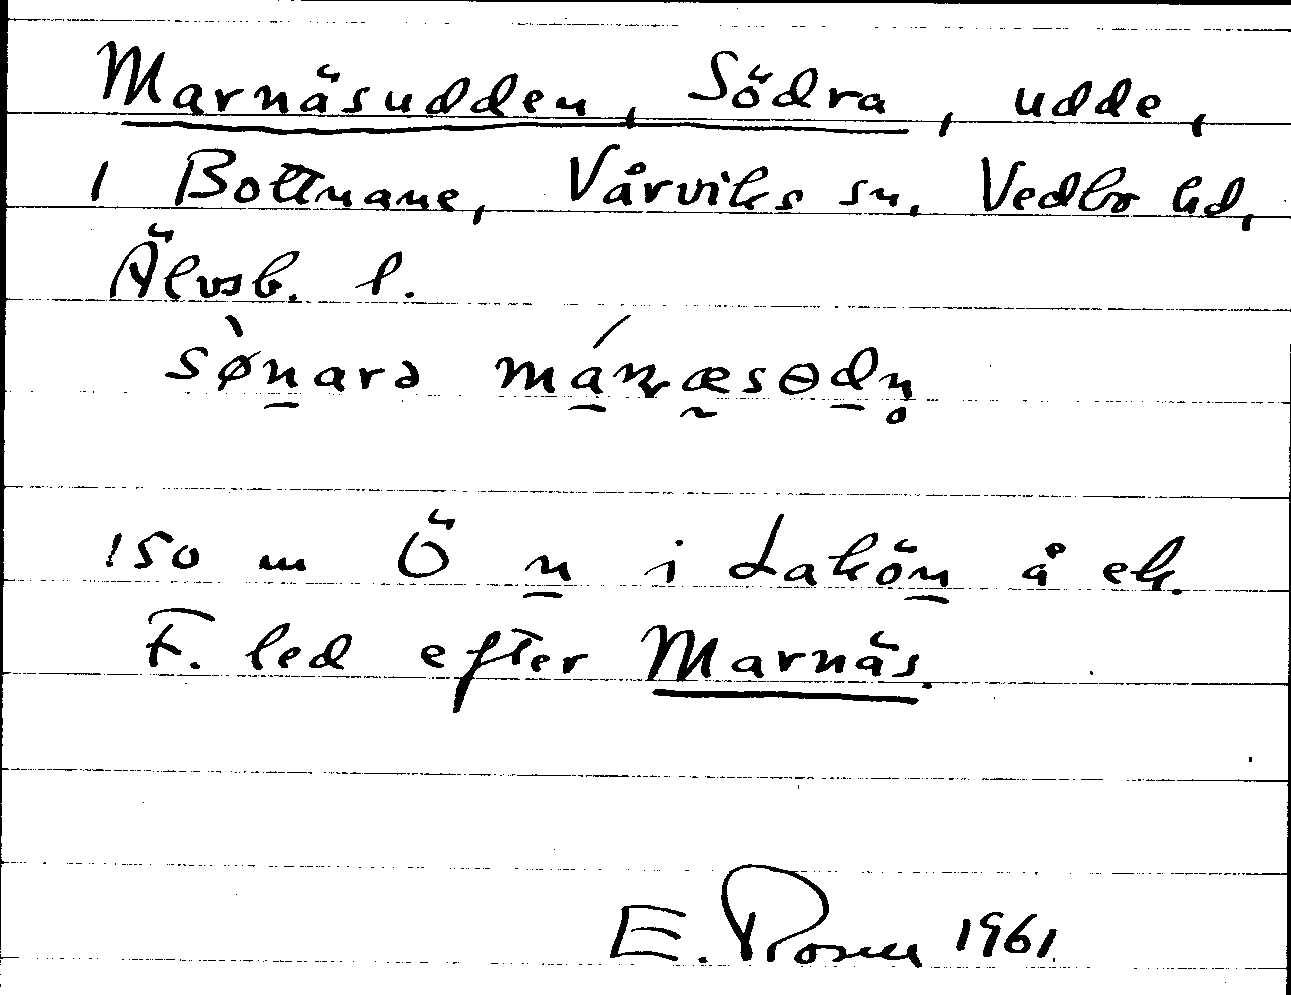 Marnäsudden, Södra, udde,
1 Bottnane, Vårviks sn. Vedbo hd,
Älvsb. l.
sø̀narə mánæsɵdn̥
150 m Ö n i Lakön å ek.
F. led efter Marnäs.
E. Rosen 1961.